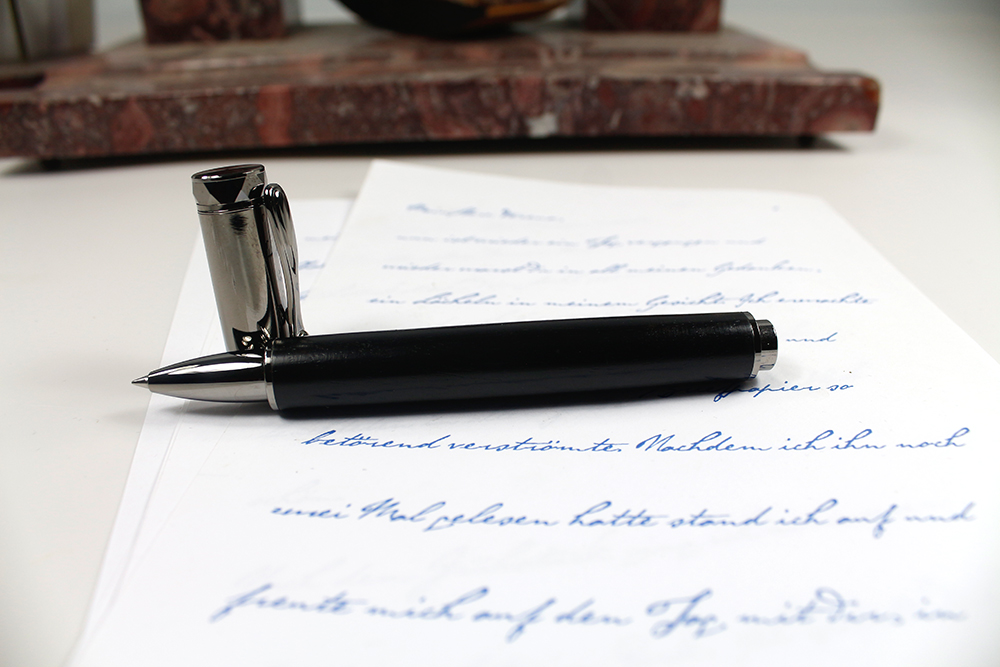 nun ist wieder ein Tag vergangen und
wieder warst Du in all meinen Gedanken,
ein Lächeln in meinem Gesicht. Ich erwachte
und
papier so
betörend verströmte. Nachdem ich ihn noch
zwei Mal gelesen hatte stand ich auf und
freute mich auf den Tag mit dir, in